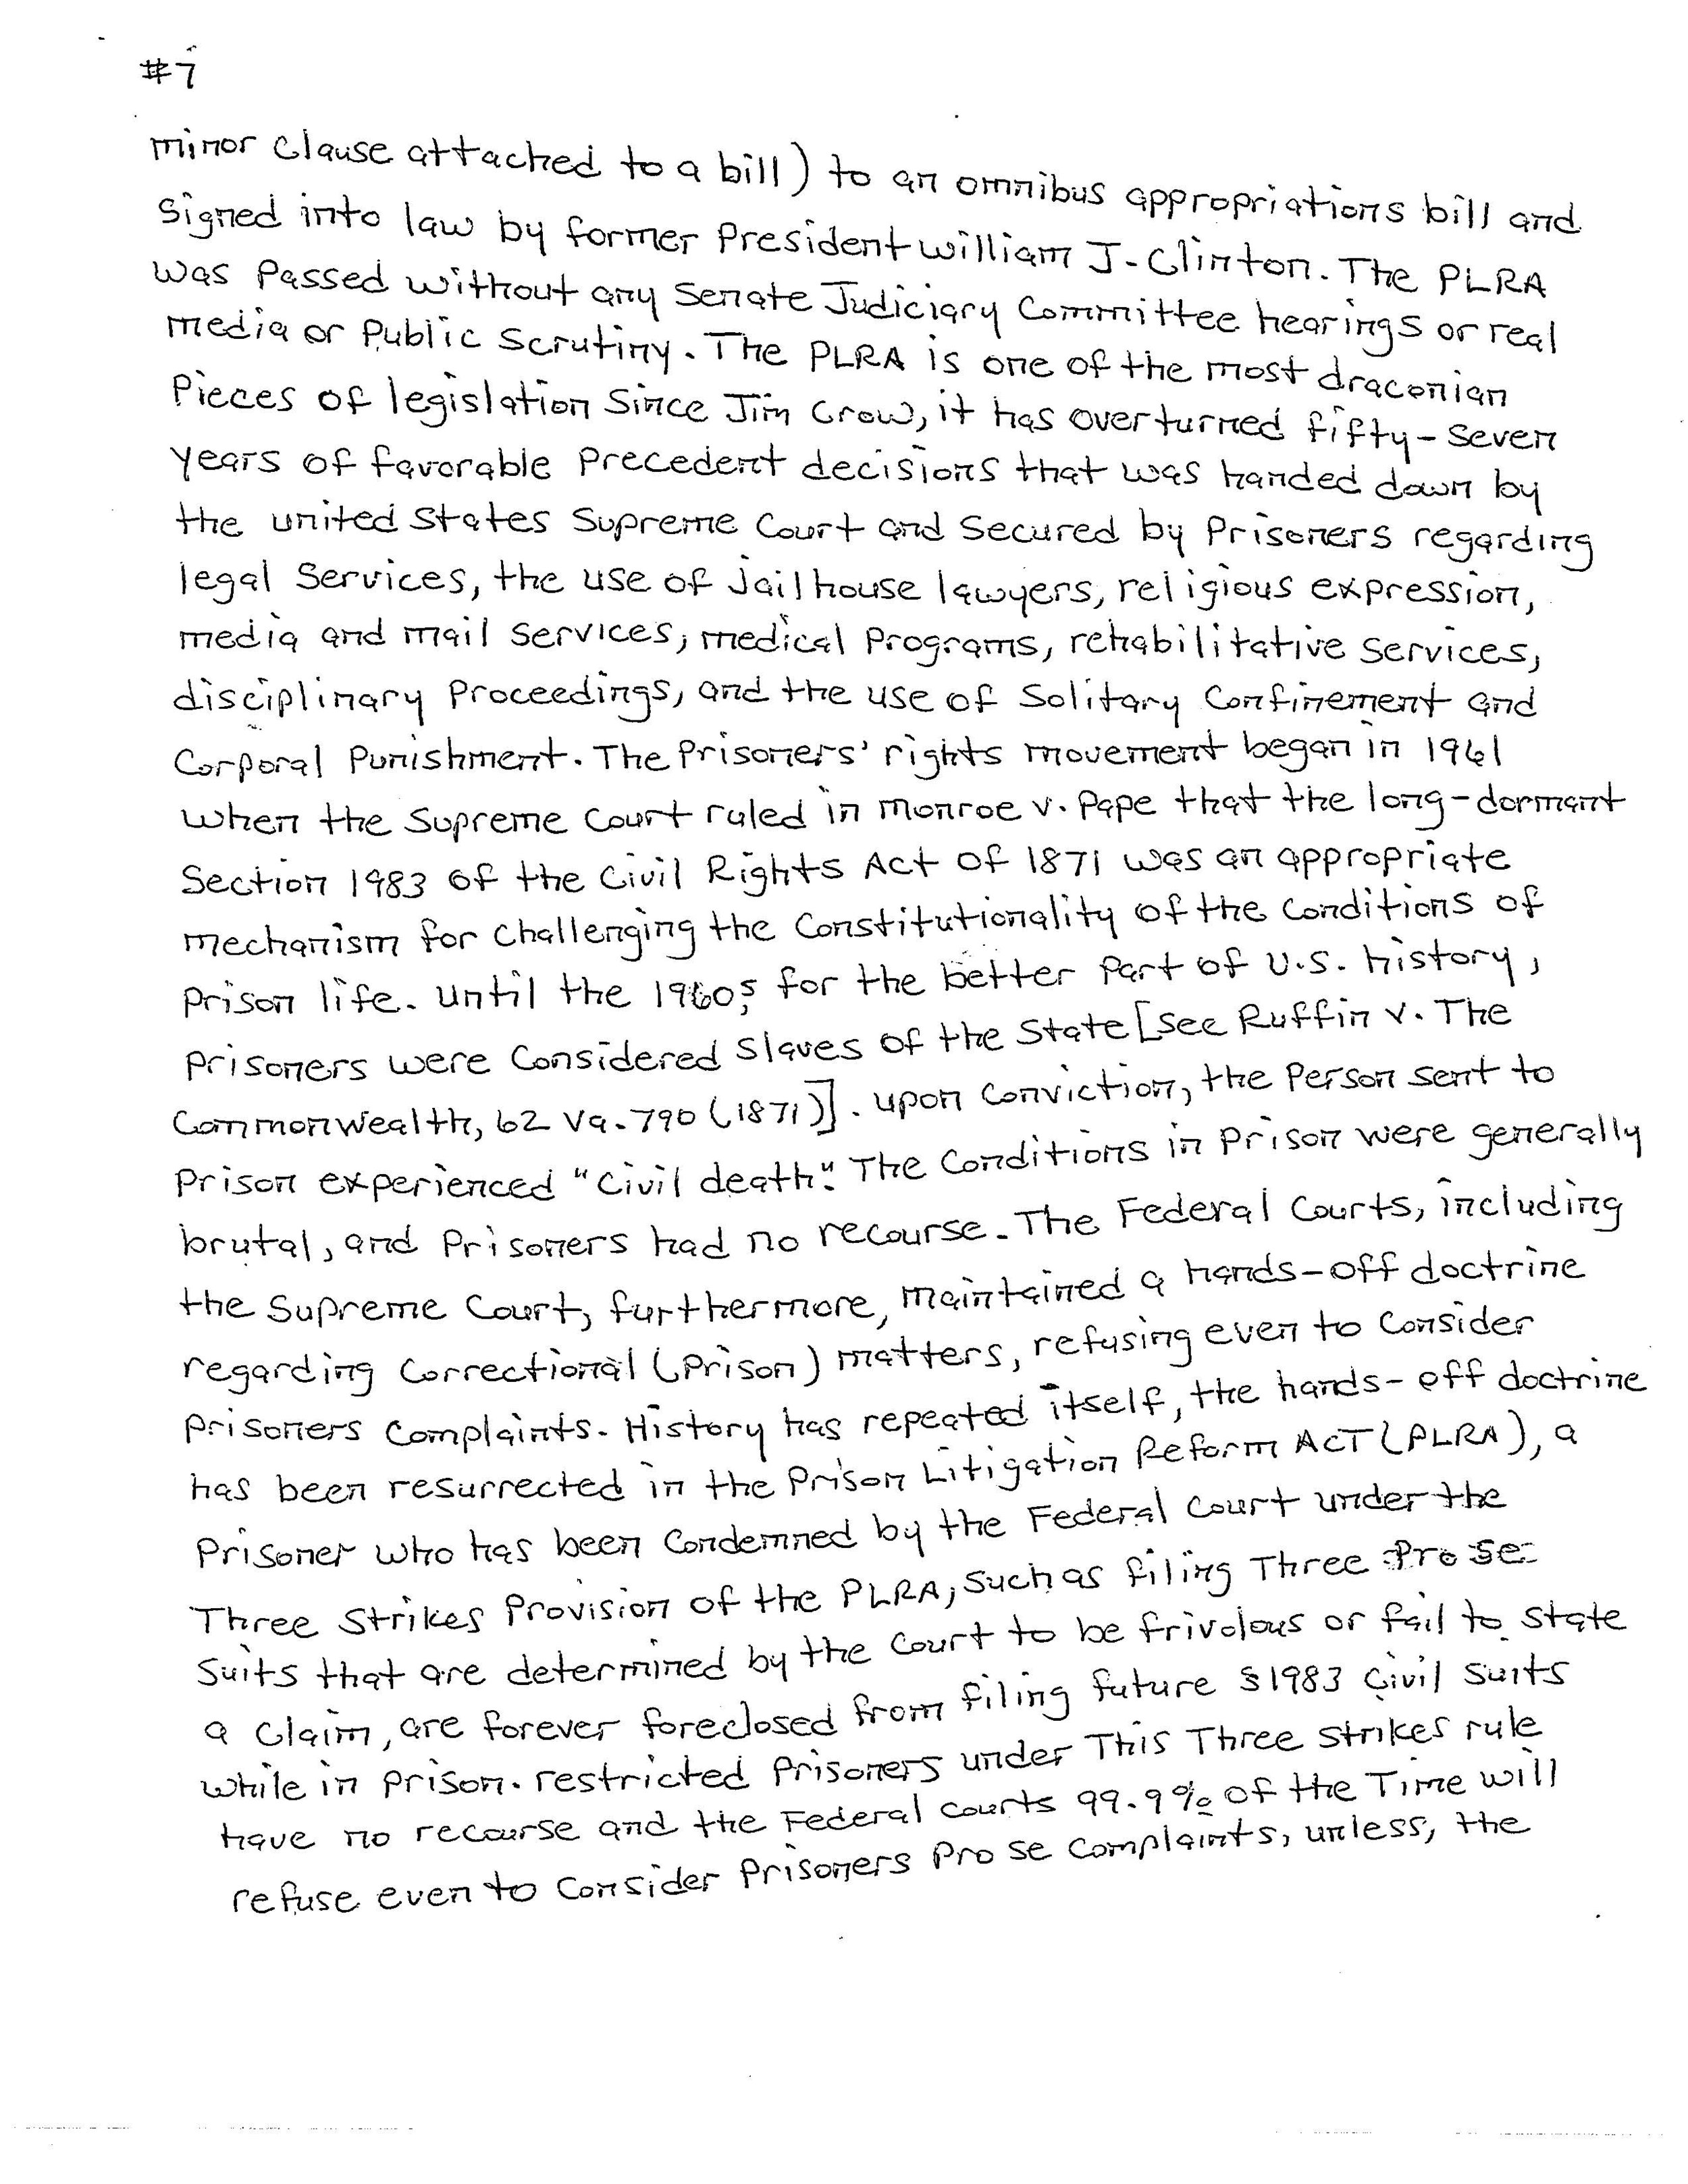 #7
minor clause attached to a bill) to an omnibus appropriations bill and
signed into law by former President William J. Clinton. The PLRA
was Passed without any Senate Judiciary Committee hearings or real
media or Public Scrutiny. The PLRA is one of the most draconian
Pieces of legislation Since Jim Crow, it has overturned fifty-seven
years of favorable Precedent decisions that was handed down by
the united States Supreme Court and Secured by Prisoners regarding
legal Services, the use of Jailhouse lawyers, religious expression,
media and mail services, medical Programs, rehabilitative services,
disciplinary Proceedings, and the use of Solitary Confinement and
Corporal Punishment. The Prisoners' rights movement began in 1961
when the Supreme Court ruled in Monroe v. Pape that the long-dormant
Section 1983 of the Civil Rights Act of 1871 was an appropriate
mechanism for challenging the Constitutionality of the Conditions of
Prison life. until the 1960s, for the better Part of U.S. history,
Prisoners were Considered Slaves of the State [see Ruffin v. The
Commonwealth, 62 Va. 790 (1871)]. upon Conviction, the Person sent to
Prison experienced "Civil death". The Conditions in Prison were generally
brutal, and Prisoners had no recourse. The Federal Courts, including
the Supreme Court, furthermore, maintained a hands-off doctrine
regarding Correctional (Prison) matters, refusing even to Consider
Prisoners Complaints. History has repeated itself, the hands-off doctrine
has been resurrected in the Prison Litigation Reform ACT (PLRA), a
Prisoner who has been Condemned by the Federal Court under the
Three Strikes Provision of the PLRA, Such as filing Three Pro se
Suits that are determined by the Court to be frivolous or fail to State
a Claim, are forever foreclosed from filing future §1983 Civil Suits
while in Prison. restricted Prisoners under This Three Strikes rule
have no recourse and the Federal Courts 99.9% of the Time will
refuse even to Consider Prisoners Pro se Complaints, unless, the